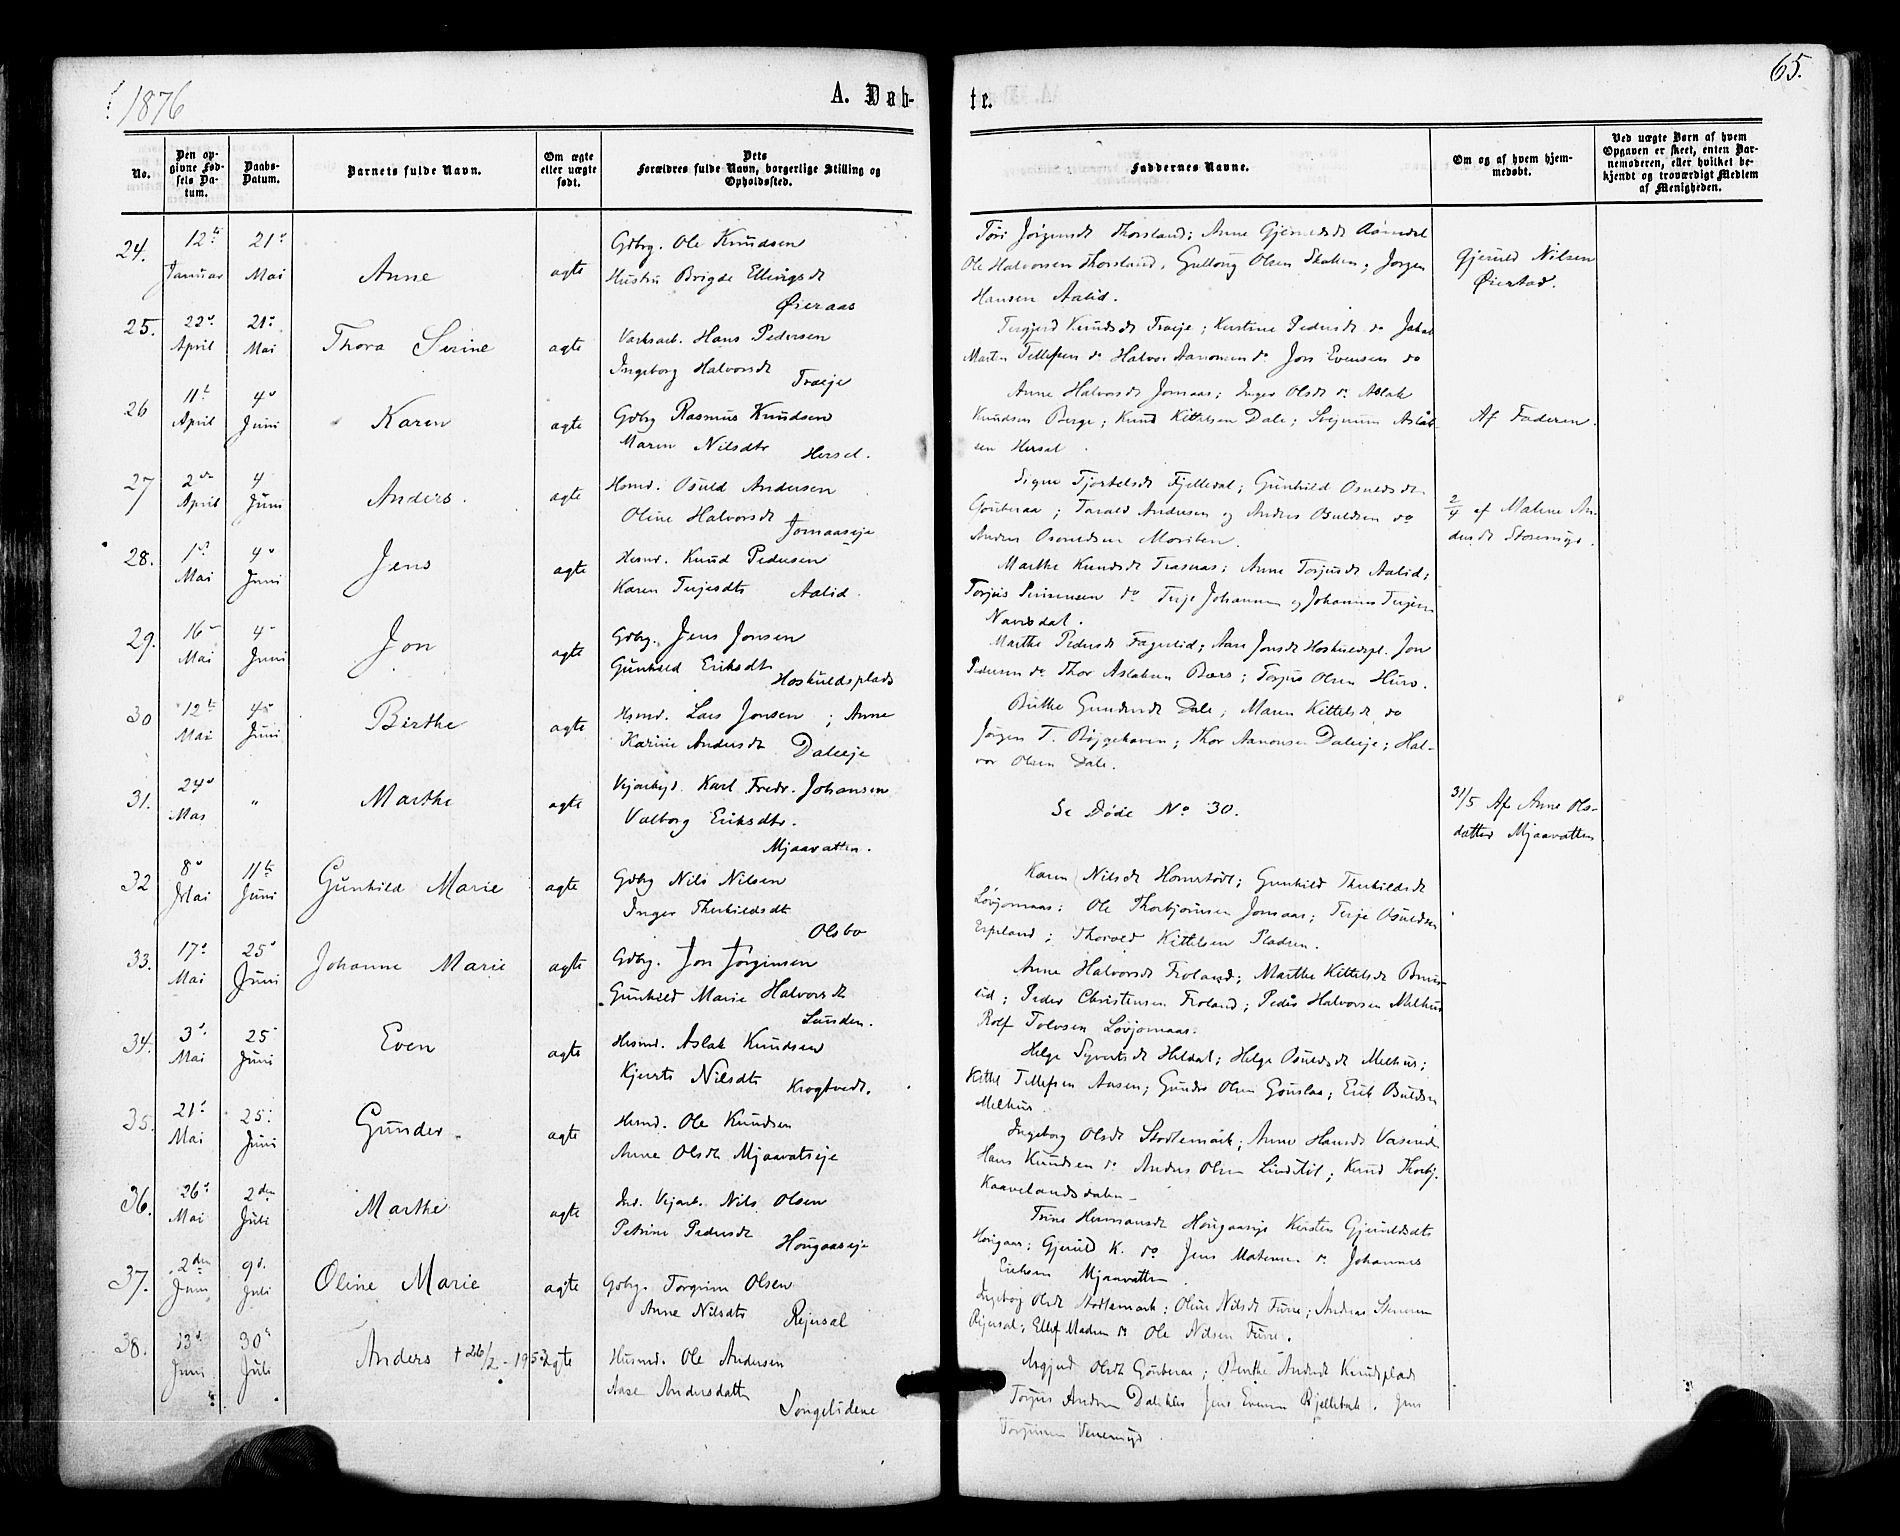 1876
A. Døb-
te.
65.
No.
Den opgivne Fødsels Datum.
Daabs-Datum.
Barnets fulde Navn.
Om ægte eller uægte født.
Dets Forældres fulde Navn, borgerlige Stilling og Opholdssted.
Faddernes Navne.
Om og af hvem hjemmedøbt.
Ved uægte Børn af hvem Opgaven er skeet, enten Barnemoderen, eller hvilket bekjendt og troværdigt Medlem af Menigheden.
24.
12te Januar
21de Mai
Anne
ægte
Gdbrg. Ole Knudsen
Hustru Brigde Ellingsdt
Øieraas
Ole Halvorsen Thorsland, Guttorm Olsen ; Jørgen
Hansen Aalid.
Gjeruld Nilsen
Øiestad.
25.
22de April
21de Mai
Thora Sirine
ægte
Værksarb. Hans Pedersen
Ingeborg Halvorsdt
Træeje
Knudsdt Træeje ; Kirstine Pedersdt do Jakob
Tellefsen do Halvor Aanonsen do Jørs Evensen do
26
11te April
4de Juni
Karen
ægte
Gdbrg Rasmus Knudsen
Maren Nilsdtr
Hersel.
Anne Halvorsdt Jomaas ; Inger Olsdt do Aslak
Knudsen Berge ; Knud Kittelsen Dale ; Aslak-
sen Hersel.
Af Faderen.
27
2den April
4 Juni
Anders.
ægte
Hsmd. Osuld Andersen
Oline Halvorsdt
Jomaaseje
Signe Fjelledal ; Gunhild Osuldsdt
; Tarald Andersen og Anders Osuldsen do
2/4 af Malene An-
dersdt Storemyr.
28.
1ste Mai
4de Juni
Jens
ægte
Hsmd. Knud Pedersen
Karen Terjesdtr Aalid.
Marthe Knudsdt ; Anne Torjusdt Aalid ;
Torjus do Terje Johannesen og Johannes Terjesen
29.
16 Mai
4 Juni
Jon
ægte
Gdbrg. Jens Jonsen
Gunhild Eriksdtr
Hoskuldsplads
Marthe Pedersdt Fagerlid ; Aase Jonsdt Hoskuldspl. Jon
Pedersen do Thor Aslaksen ; Torjus Olsen
30
12te Mai
4de Juni
Birthe
ægte
Hsmd. Lars Jensen ; Anne
Karine Andersdt Daleeje
Birthe Gundersdt Dale ; Maren Kittelsdt do
Jørgen T. Bøjgehaven ; Thor Aanonsen Daleeje ; Hal-
vor Olsen Dale.
31.
24de Mai
"
Marthe
ægte
Vejarbejd. Karl Fredr. Johansen
Valborg Eriksdtr.
Mjaavatten.
Se Døde No 30.
31/5 Af Anne Ols-
datter Mjaavatten
32
8de Mai
11te Juni
Gunhild Marie
ægte
Gdbrg Nils Nilsen
Inger Therkildsdt
Olsbo
Karen Nilsdt ; Gunhild Therkildsdt
Løvjomaas : Ole Thorbjørnsen Jomaas ; Terje Osuldsen
Espeland ; Thorvald Kittelsen Pladsen.
33.
17de Mai
25de Juni
Johanne Marie
ægte
Gdbrg. Jon Jørginsen
Gunhild Marie Halvorsdt
Lunden.
Anne Halvorsdt Froland ; Marthe Kittelsdt
; Peder Christensen Froland ; Peder Halvorsen Melhus
Rolf Tolvsen Løvjomaas.
34.
3de Mai
25 Juni
Even
ægte
Hsmd. Aslak Knudsen
Nilsdtr Krogtvedt.
Helge Syvertsdt Heldal ; Helge Osuldsdt Melhus ;
Kittel Tellefsen Aasen ; Gunder Olsen ; Erik Osuldsen
Melhus.
35.
21de Mai
25de Juni
Gunder.
ægte
Hsmd. Ole Knudsen
Anne Olsdtr Mjaavatseje
Ingeborg Olsdt Stødlemark ; Anne Hansdt
Hans Knudsen do Anders Olsen Lindtøl ; Knud Thorbj.
Kaavelandsdalen
36.
26de Mai
2den Juli
Marthe
ægte
Ind. Vejarb. Nils Olsen
Petrine Pedersdt
Hougaaseje
Trine Hermansdt Hougaaseje Kirsten Gjeruldsdtr
Hougaas ; Gjeruld K. do Jens do Johannes
Eriksen Mjaavatten
37.
2den Juni
9de Juli
Oline Marie
ægte
Gdbrg. Torgrim Olsen
Anne Nilsdtr
Rejersøl
Ingeborg Olsdt Stødlemark ; Oline Nilsdt Furre ; Andreas
Rejersøl ; Ellef Madsen do Ole Nilsen Furre.
38.
13de Juni
30te Juli
Anders + 26/2 - 1953
ægte
Husmd. Ole Andersen
Aase Andersdatter
Songelidene
Olsdt ; Berthe Andersdt Knudsplads
Torjus Andersen Jens Evensen . Jens